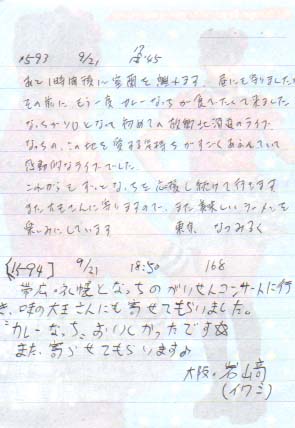 1593 9/21 6:45
あと1時間後に室蘭を離れます。
その前に もう一度 カレーなっちが食べたくて来ました
なっちがソロとなって初めての故郷北海道のライブ
なっちの、この地を愛する気持ちがすごくあふれていて
感動的なライブでした
これからもずっとなっちを応援し続けて行きます
また大王さんに寄りますので、また美味しいラーメンを
楽しみにしています 東京
【1594】 9/21 18:50 168
帯広・札幌となっちのがいせんコンサートに行
き、味の大王さんにも寄せてもらいました。
"カレーなっち" おいしかったです☆
また、寄らせてもらいますね
大阪・岩山奇
(イワミ)